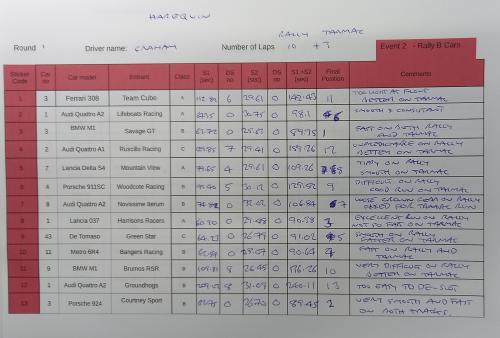 HAREQUIN
RALLY TARMAC
Round 1 Driver name: GRAHAM Number of Laps 10 + 3 Event 2 - Rally B Cars
Sticker Code Car no Car model Entrant Class S1 (sec) DS no S2 (sec) DS no S1 +S2 (sec) Final Position Comments
1 3 Ferrari 308 Team Cube A 6 29.61 0 142.45 11 TOO LIGHT AT FRONT BETTER ON TARMAC
2 1 Audi Quattro A2 Lifeboats Racing A 0 30.75 0 98.1 6 SMOOTH & CONSISTANT
3 3 BMW M1 Savage GT B 0 0 89.75 1 FAST ON BOTH RALLY AND TARMAC
4 2 Audi Quattro A1 Ruscillo Racing C 7 29.41 0 12 UNPREDICTABLE ON RALLY BETTER ON TARMAC
5 7 Lancia Delta S4 Mountain View A 4 29.61 0 109.26 8 TIPSY ON RALLY SMOOTH ON TARMAC
6 4 Porsche 911SC Woodcote Racing B 5 0 9 DIFFICULT ON RALLY GOOD RUN ON TARMAC
7 8 Audi Quattro A2 Novissime Iterum B 0 0 106.84 7 LOOSE CROWN GEAR ON RALLY FIXED FOR TARMAC RUN
8 1 Lancia 037 Harrisons Racers A 60.90 0 0 90.38 3 EXCELLENT RUN ON RALLY NOT SO FAST ON TARMAC
9 43 De Tomaso Green Star C 64.23 0 26.79 0 91.02 5 SMOOTH ON RALLY FASTER ON TARMAC
10 11 Metro 6R4 Bangers Racing B 0 28.07 0 90.64 4 FAST ON RALLY AND TARMAC
11 9 BMW M1 Brumos RSR B 8 26.45 0 10 VERY DIFFICULT ON RALLY BETTER ON TARMAC
12 1 Audi Quattro A2 Groundhogs B 8 31.09 0 240.11 13 TOO EASY TO DE-SLOT
13 3 Porsche 924 Courtney Sport B 0 26.70 0 89.45 2 VERY SMOOTH AND FAST ON BOTH TRACKS.